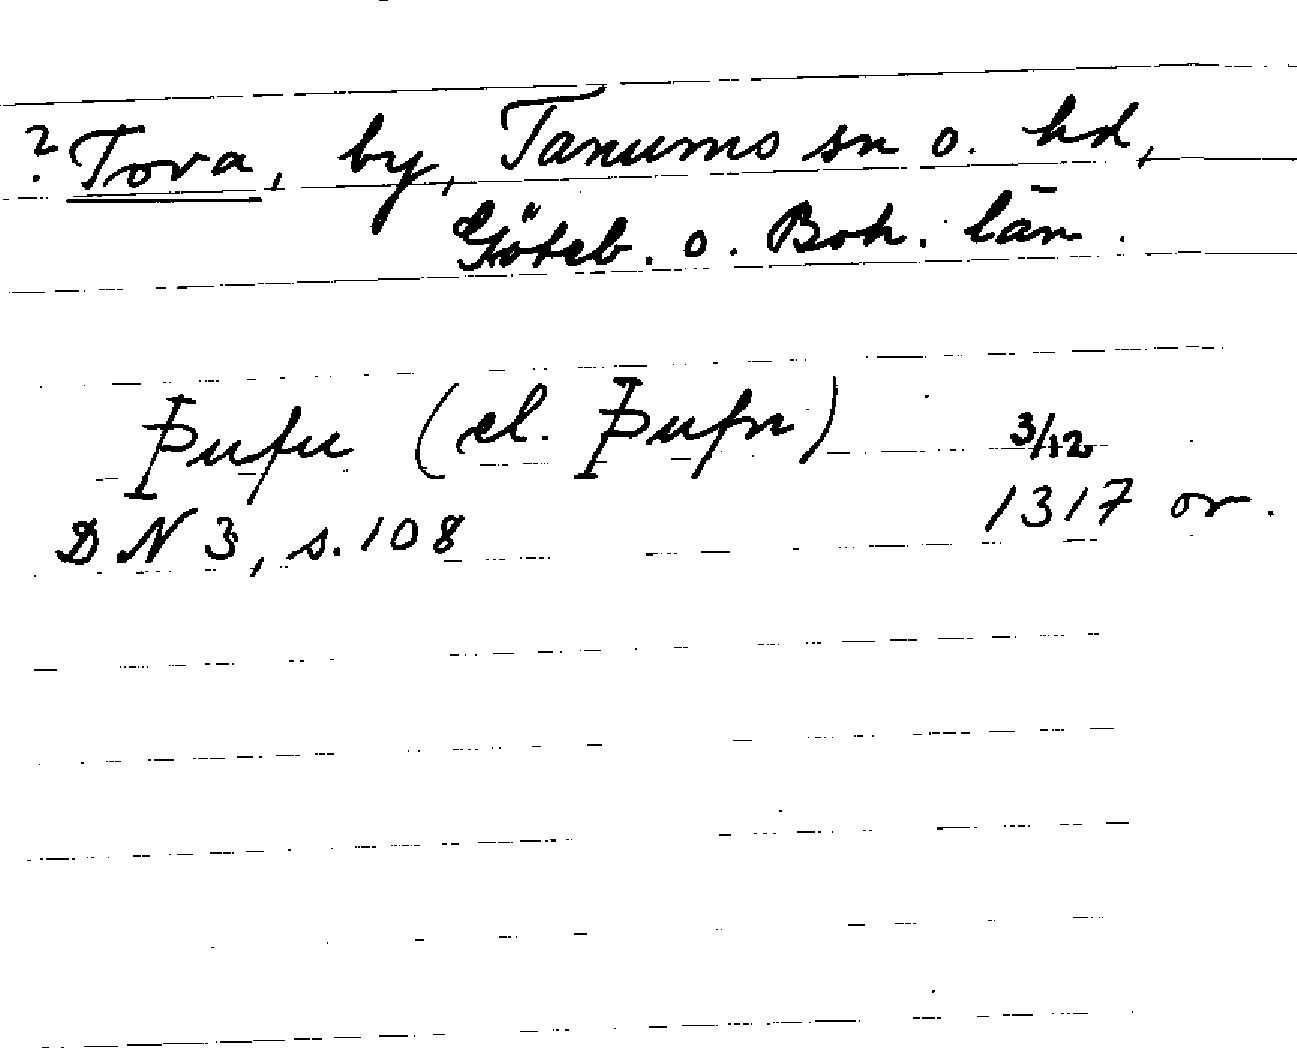 ? Tova, by, Tanums sn o. hd,
Göteb. o. Boh. län.
Þufu (el. Þufn) 3/12
DN 3, s. 108 1317 or.